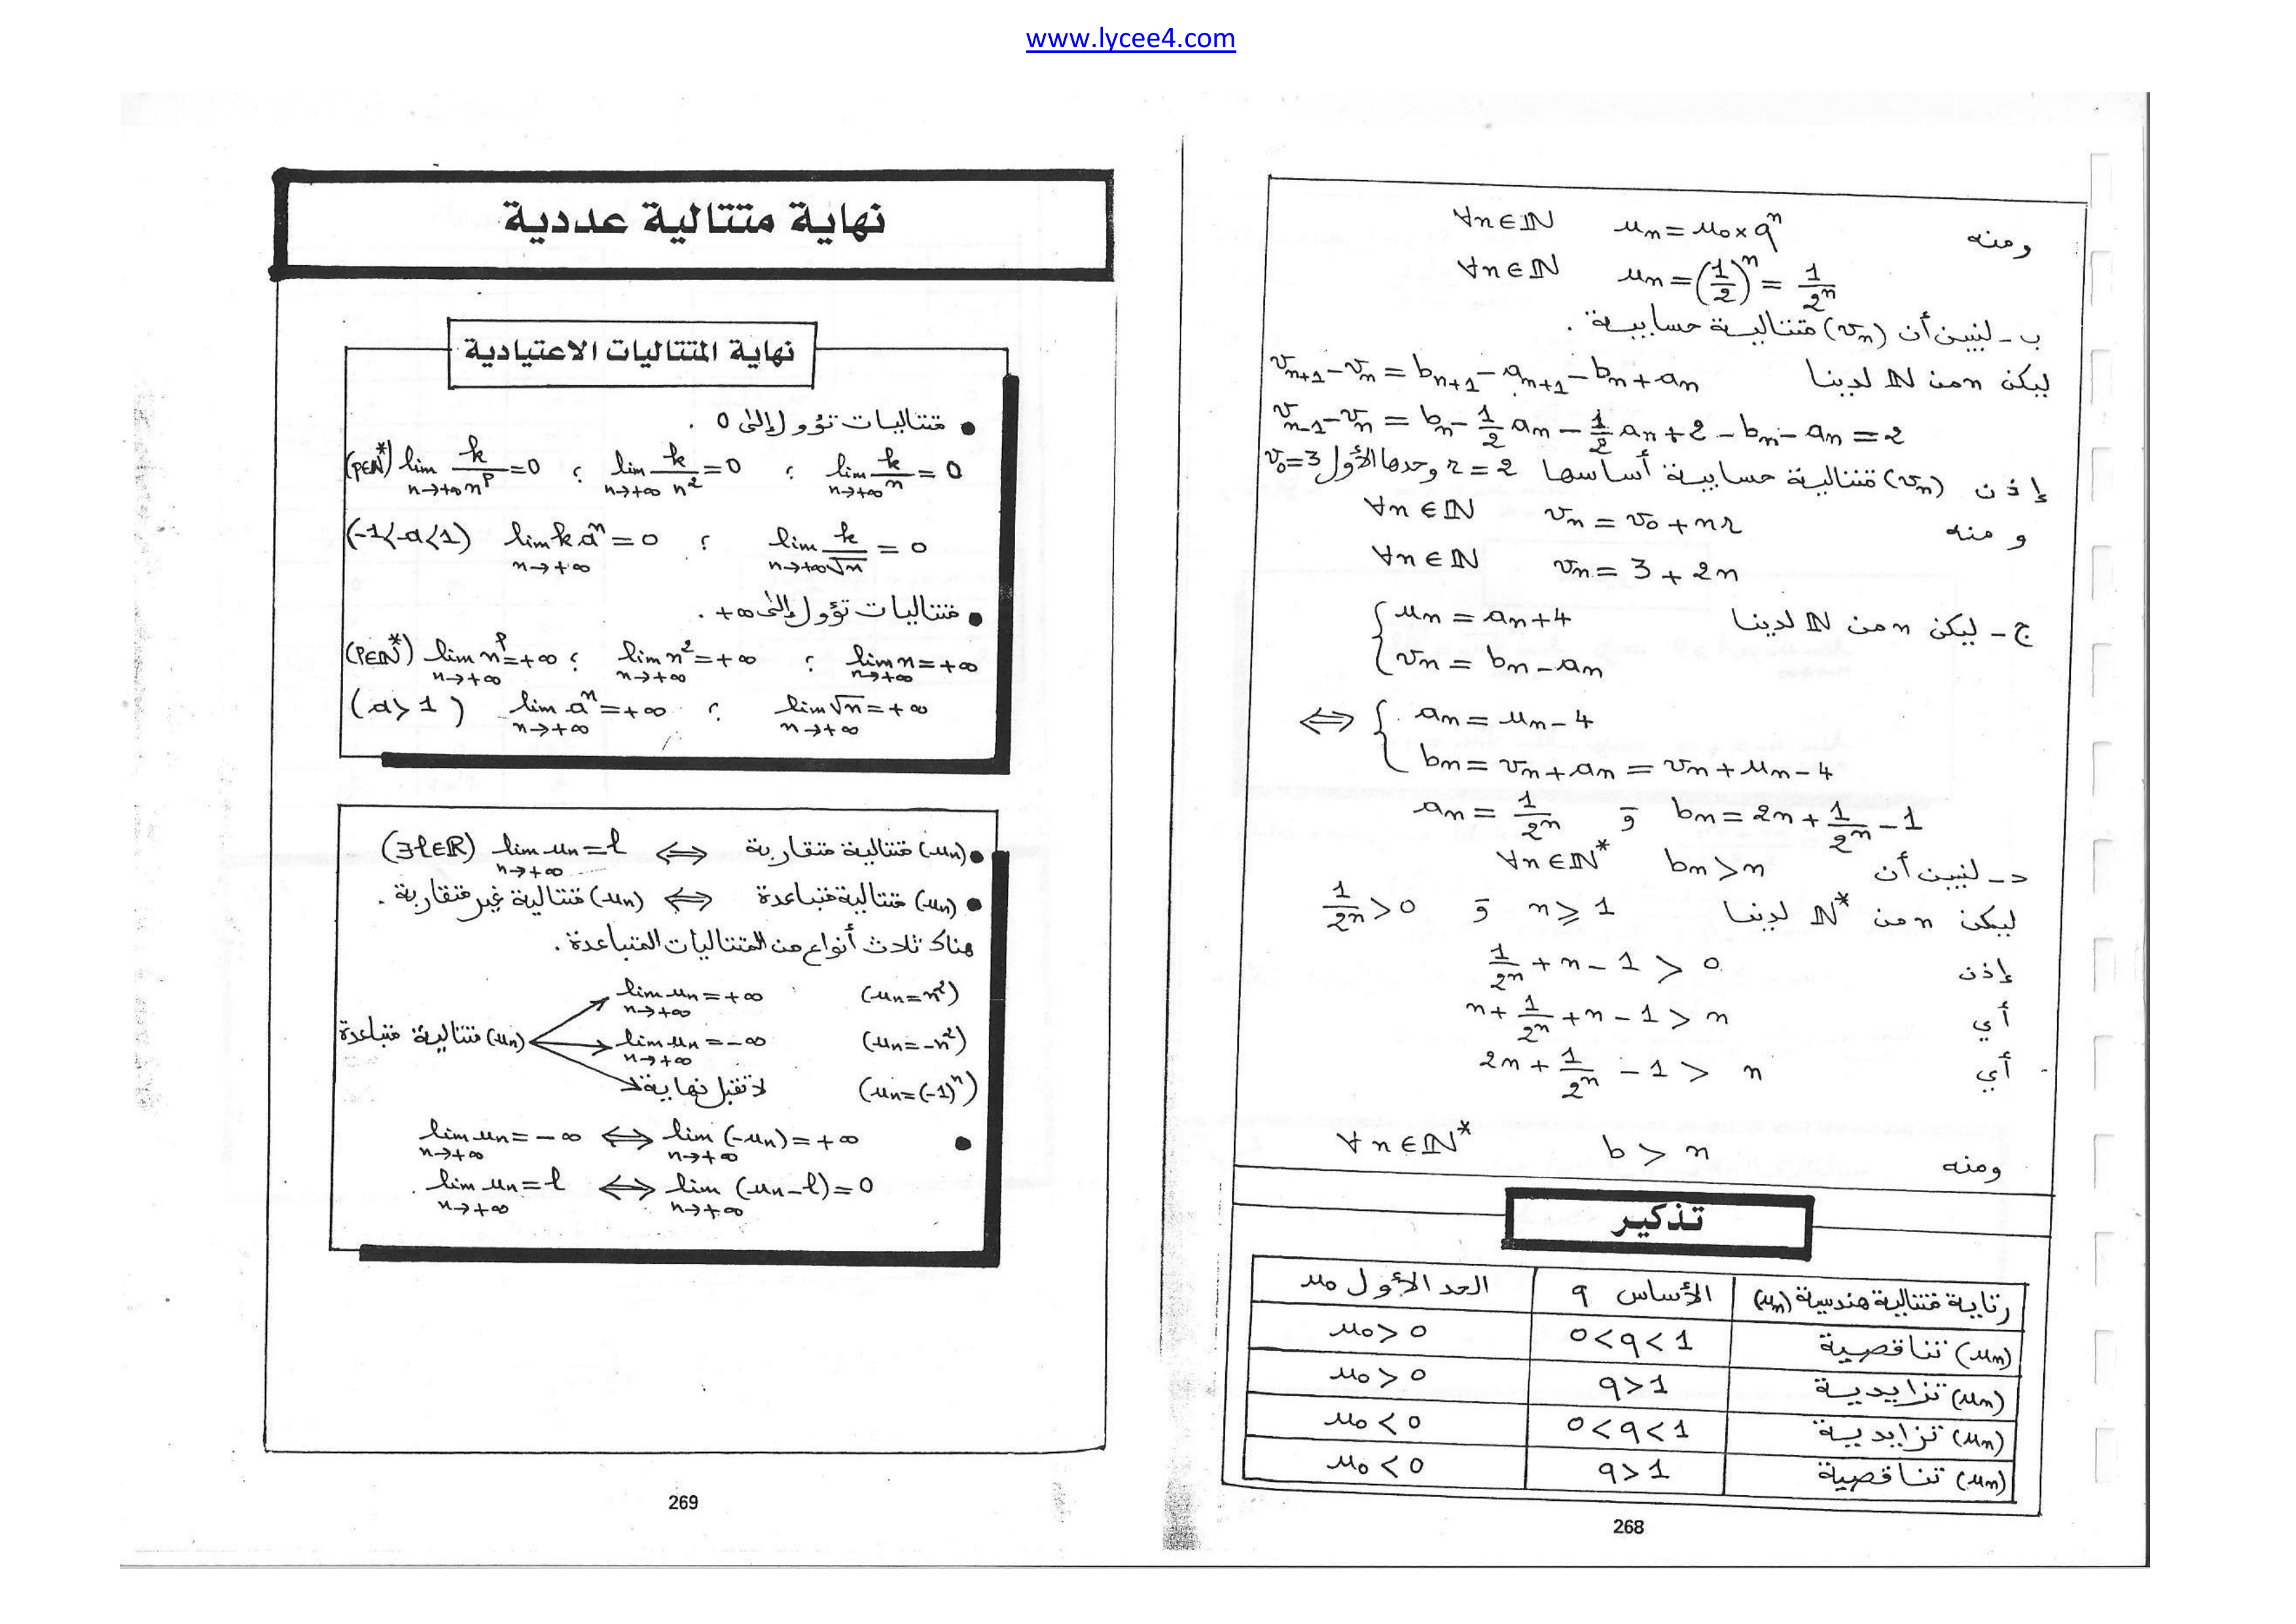 www.lycee4.com
ومنه u_n = u_0 × q^n ∀n∈ℕ
u_n = (1/2)^n = 1/2^n ∀n∈ℕ
ب - لنبين أن (v_n) متتالية حسابية .
ليكن n من ℕ لدينا v_{n+1} - v_n = b_{n+1} - a_{n+1} - b_n + a_n
v_{n-1} - v_n = b_n - 1/2 a_n - 1/2 a_n + 2 - b_n - a_n = 2
إذن (v_n) متتالية حسابية أساسها r = 2 وحدها الأول v_0 = 3
ومنه v_n = v_0 + nr ∀n∈ℕ
v_n = 3 + 2n ∀n∈ℕ
ج - ليكن n من ℕ لدينا { u_n = a_n + 4
v_n = b_n - a_n
⇔ { a_n = u_n - 4
b_n = v_n + a_n = v_n + u_n - 4
a_n = 1/2^n و b_n = 2n + 1/2^n - 1
د - لنبين أن b_n > n ∀n∈ℕ*
ليكن n من ℕ* لدينا n ⩾ 1 و 1/2^n > 0
إذن 1/2^n + n - 1 > 0
أي n + 1/2^n + n - 1 > n
أي 2n + 1/2^n - 1 > n
ومنه b > n ∀n∈ℕ*
تذكير
رتابة متتالية هندسية (u_n) | الأساس q | الحد الأول u_0
(u_n) تناقصية | 0<q<1 | u_0 > 0
(u_n) تزايدية | q>1 | u_0 > 0
(u_n) تزايدية | 0<q<1 | u_0 < 0
(u_n) تناقصية | q>1 | u_0 < 0
268
نهاية متتالية عددية
نهاية المتتاليات الاعتيادية
• متتاليات تؤول إلى 0 .
lim_{n→+∞} k/n = 0 ; lim_{n→+∞} k/n^2 = 0 ; lim_{n→+∞} k/n^p = 0 (p∈ℕ*)
lim_{n→+∞} k/√n = 0 ; lim_{n→+∞} k a^n = 0 (-1<a<1)
• متتاليات تؤول إلى +∞ .
lim_{n→+∞} n = +∞ ; lim_{n→+∞} n^2 = +∞ ; lim_{n→+∞} n^p = +∞ (p∈ℕ*)
lim_{n→+∞} √n = +∞ ; lim_{n→+∞} a^n = +∞ (a>1)
• (u_n) متتالية متقاربة ⇔ lim_{n→+∞} u_n = l (∃l∈ℝ)
• (u_n) متتالية متباعدة ⇔ (u_n) متتالية غير متقاربة .
هناك ثلاث أنواع من المتتاليات المتباعدة .
lim_{n→+∞} u_n = +∞ (u_n = n^2)
(u_n) متتالية متباعدة lim_{n→+∞} u_n = -∞ (u_n = -n^2)
لا تقبل نهاية (u_n = (-1)^n)
• lim_{n→+∞} u_n = -∞ ⇔ lim_{n→+∞} (-u_n) = +∞
lim_{n→+∞} u_n = l ⇔ lim_{n→+∞} (u_n - l) = 0
269